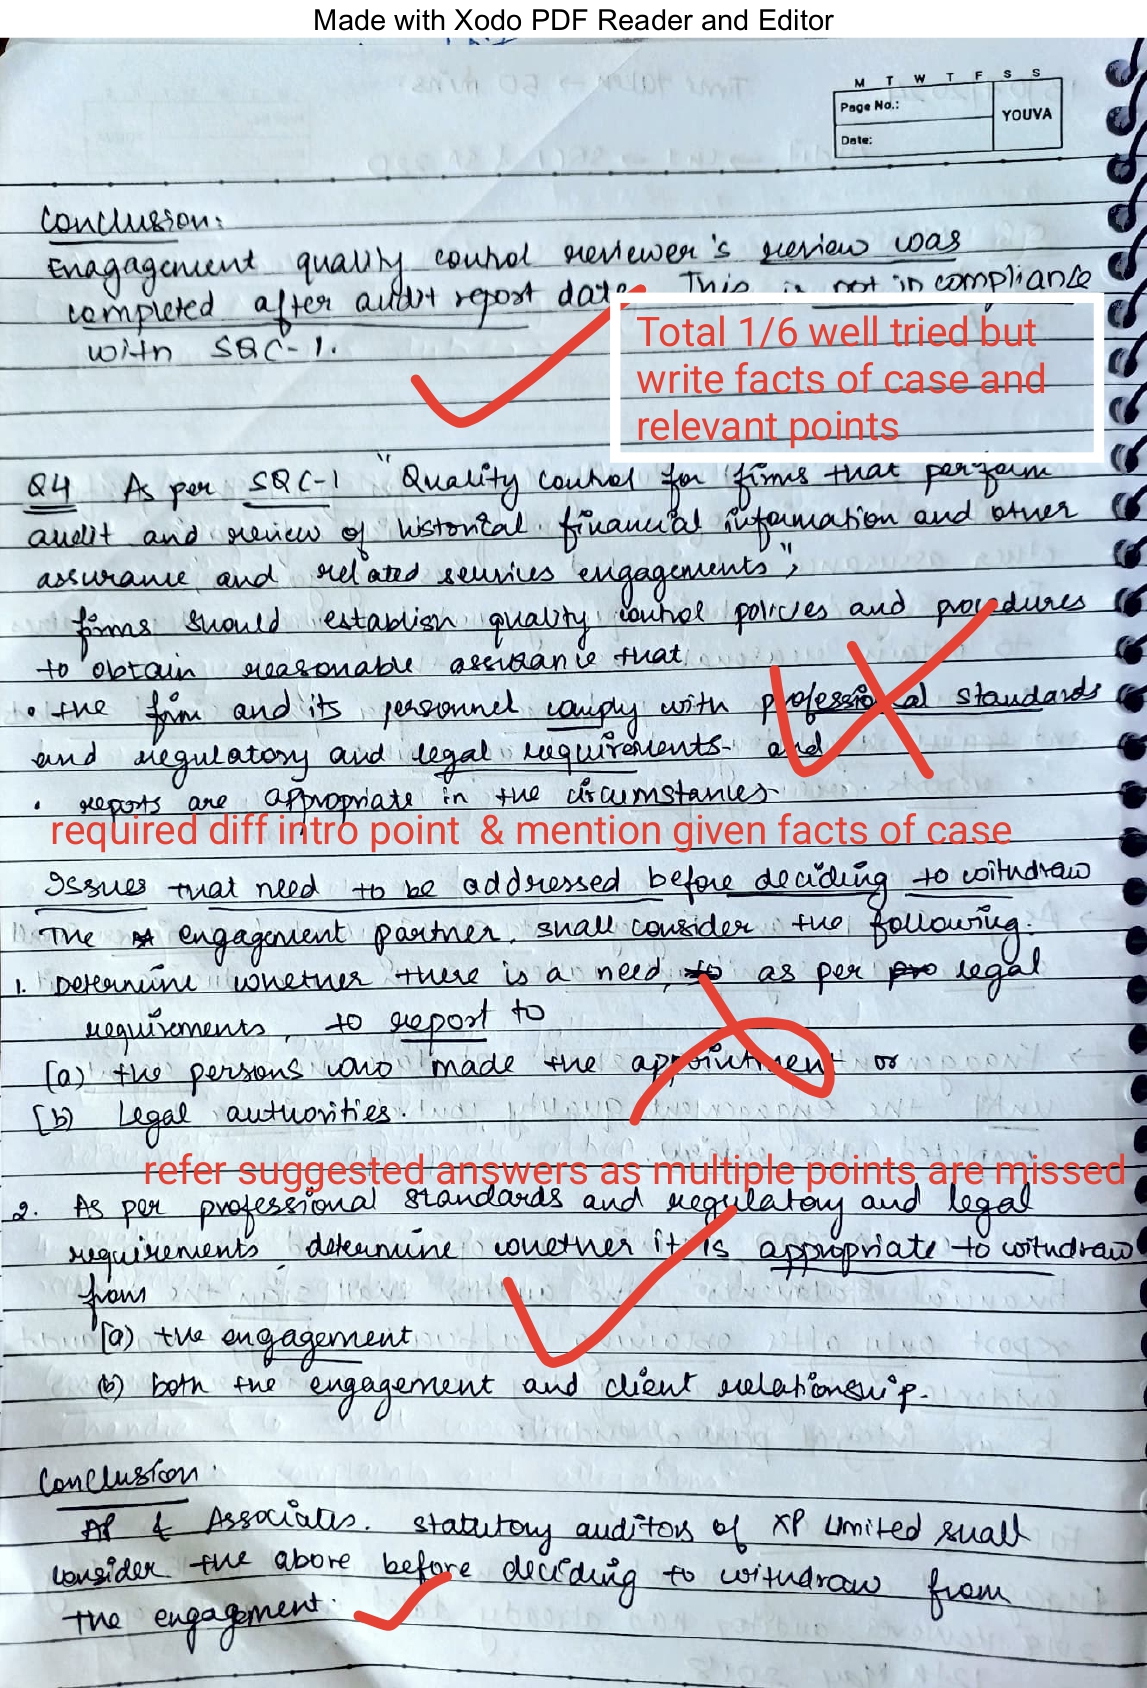 Made with Xodo PDF Reader and Editor
M T W T F S S
Page No.:
YOUVA
Date:
Conclusion:
Enagagement quality control reviewer's review was
completed after audit report date. This is not in compliance
with SQC-1.
Total 1/6 well tried but
write facts of case and
relevant points
Q4 As per SQC-1 "Quality control for firms that perform
audit and review of historical financial information and other
assurance and related services engagements",
firms should establish quality control policies and procedures
to obtain reasonable assurance that
• the firm and its personnel comply with professional standards
and regulatory and legal requirements and
• reports are appropriate in the circumstances.
required diff intro point & mention given facts of case
Issues that need to be addressed before deciding to withdraw
The engagement partner, shall consider the following.
1. Determine whether there is a need, as per legal
requirements, to report to
(a) the persons who made the appointment or
(b) Legal authorities.
refer suggested answers as multiple points are missed
2. As per professional standards and regulatory and legal
requirements determine whether it is appropriate to withdraw
from
(a) the engagement
(b) both the engagement and client relationship.
Conclusion.
AP & Associates. statutory auditors of XP Limited shall
consider the above before deciding to withdraw from
the engagement.